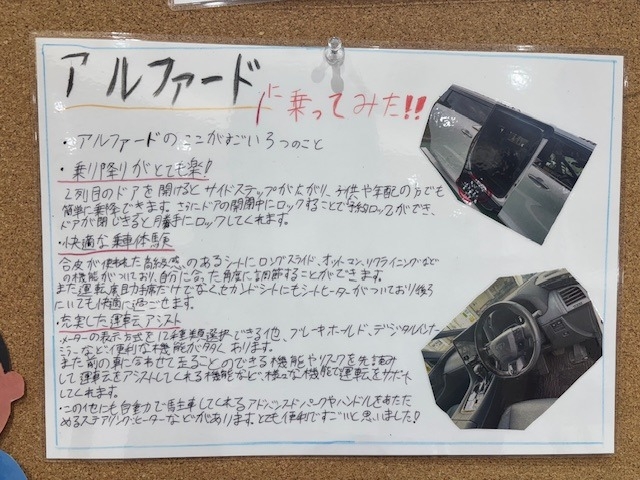 アルファードに乗ってみた!!
・アルファードのここがすごい3つのこと
・乗り降りがとても楽!
2列目のドアを開けるとサイドステップが上がり、子供や年配の方でも
簡単に乗降できます。さらにドアの開閉中にロックすることで予約ロックができ、
ドアが閉じきると勝手にロックしてくれます。
・快適な乗車体験
合皮が使われた高級感のあるシートにロングスライド、オットマン、リクライニングなど
の機能がついており、自分に合った角度に調節することができます。
また運転席助手席だけでなくセカンドシートにもシートヒーターがついており後ろ
にいても快適に過ごせます。
・充実した運転アシスト
メーターの表示方式を12種類選択できる他、ブレーキホールド、デジタルインナー
ミラーなど、便利な機能が多くあります。
また前の車に合わせて走ることのできる機能やリスクを先読み
して運転をアシストしてくれる機能など、様々な機能で運転をサポート
してくれます。
・この他にも自動で駐車してくれるアドバンスドパークやハンドルをあたた
めるステアリングヒーターなどがありますとても便利ですごいと思いました!